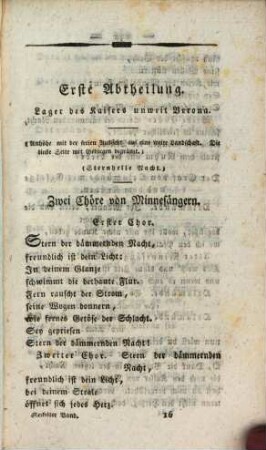 Erste Abtheilung.
Lager des Kaisers unweit Verona.
(Anhöhe mit der freien Aussicht auf eine weite Landschaft. Die
linke Seite mit Gebirgen begränzt.)
(Sternhelle Nacht.)
Zwei Chöre von Minnesängern.
Erster Chor.
Stern der dämmernden Nacht,
freundlich ist dein Licht:
In deinem Glanze
schwimmt die bethaute Flur.
Fern rauscht der Strom,
seine Wogen donnern,
Wie fernes Getöse der Schlacht.
Sey gepriesen
Stern der dämmernden Nacht!
Zweiter Chor. Stern der dämmernden
Nacht,
freundlich ist dein Licht,
bei deinem Strale
öffnet sich jedes Herz.
Band. 16